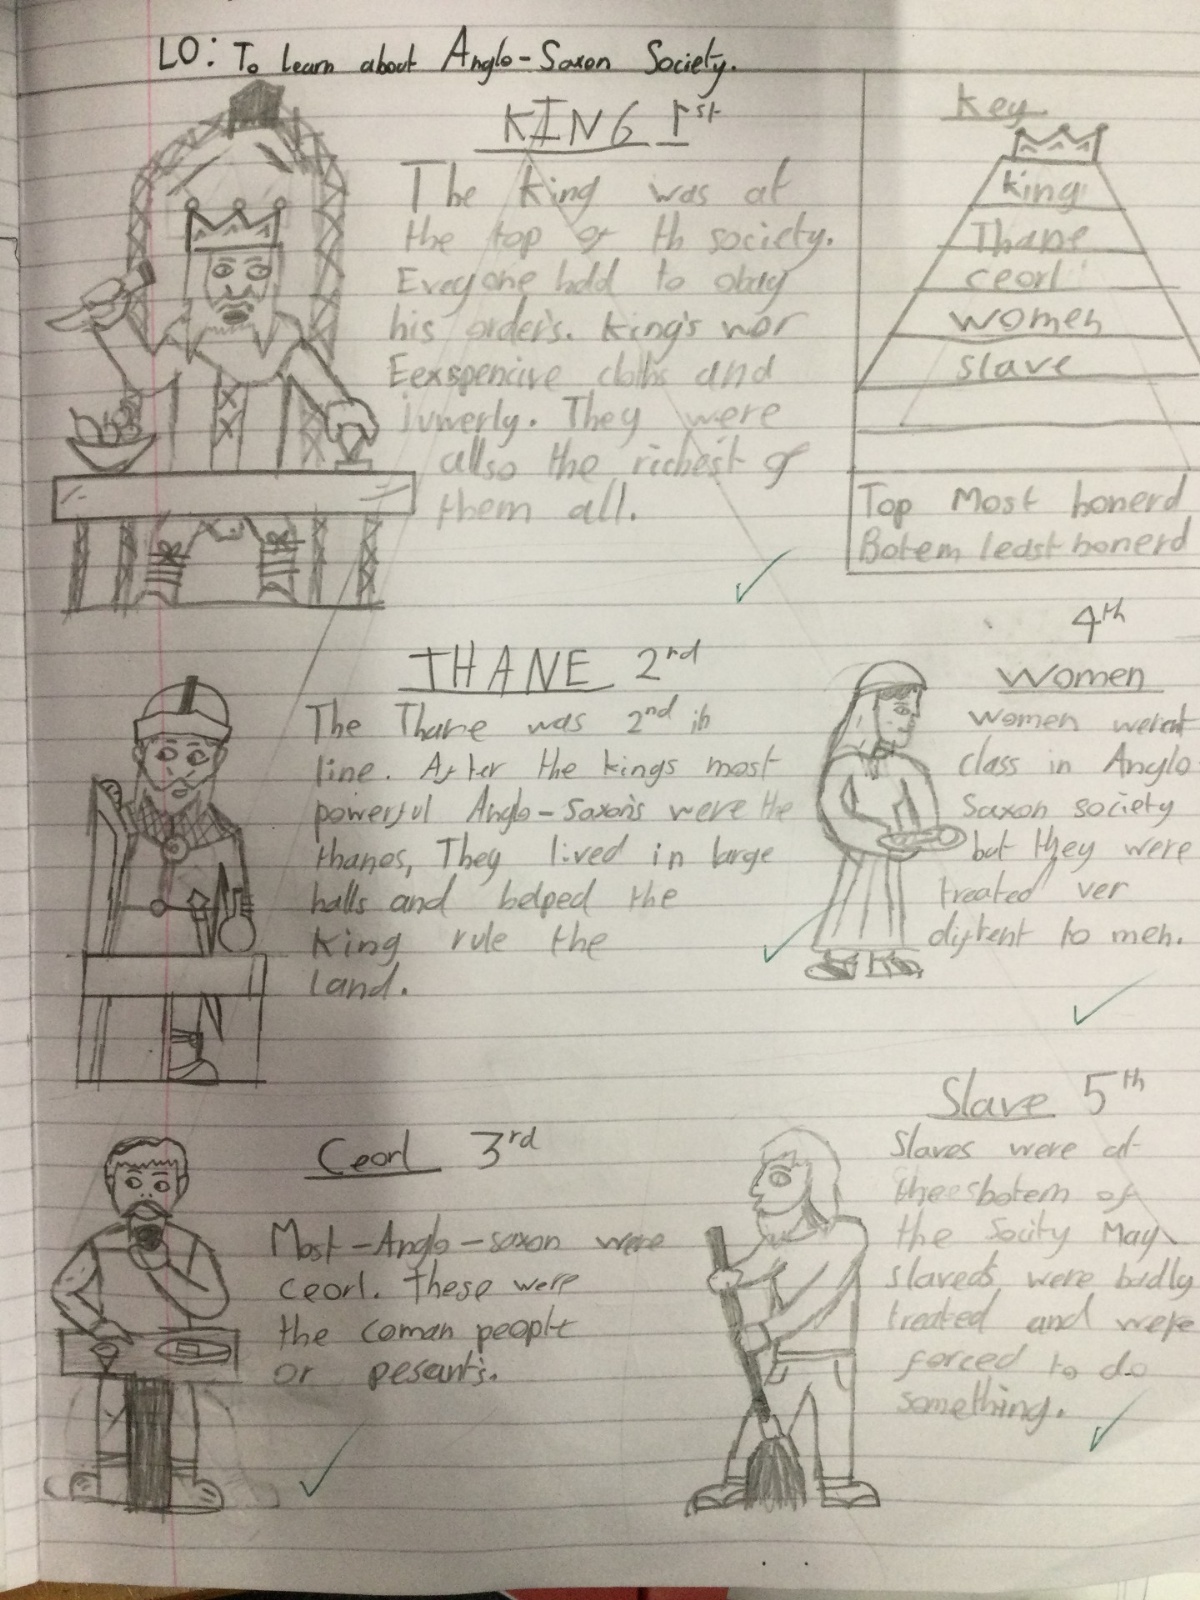 LO: To learn about Anglo-Saxon Society.
KING 1st
The king was at
the top of th society.
Eveyone hdd to obay
his order's. King's wor
Eexspencive cloths and
juwerly. They were
allso the richest of
them all.
Key
king
Thane
ceorl
women
slave
Top Most honerd
Botem least honerd
THANE 2nd
The Thane was 2nd in
line. After the kings most
powerful Anglo-Saxon's were the
thanes, They lived in large
halls and helped the
King rule the
land.
4th
Women
Women werent
class in Anglo
Saxon society
but they were
treated ver
diffrent to men.
Ceorl 3rd
Most-Anglo-saxon were
ceorl. These were
the coman people
or pesant's.
Slave 5th
Slaves were at
botem of
the Socity May
slaveds were badly
treated and were
forced to do
something.